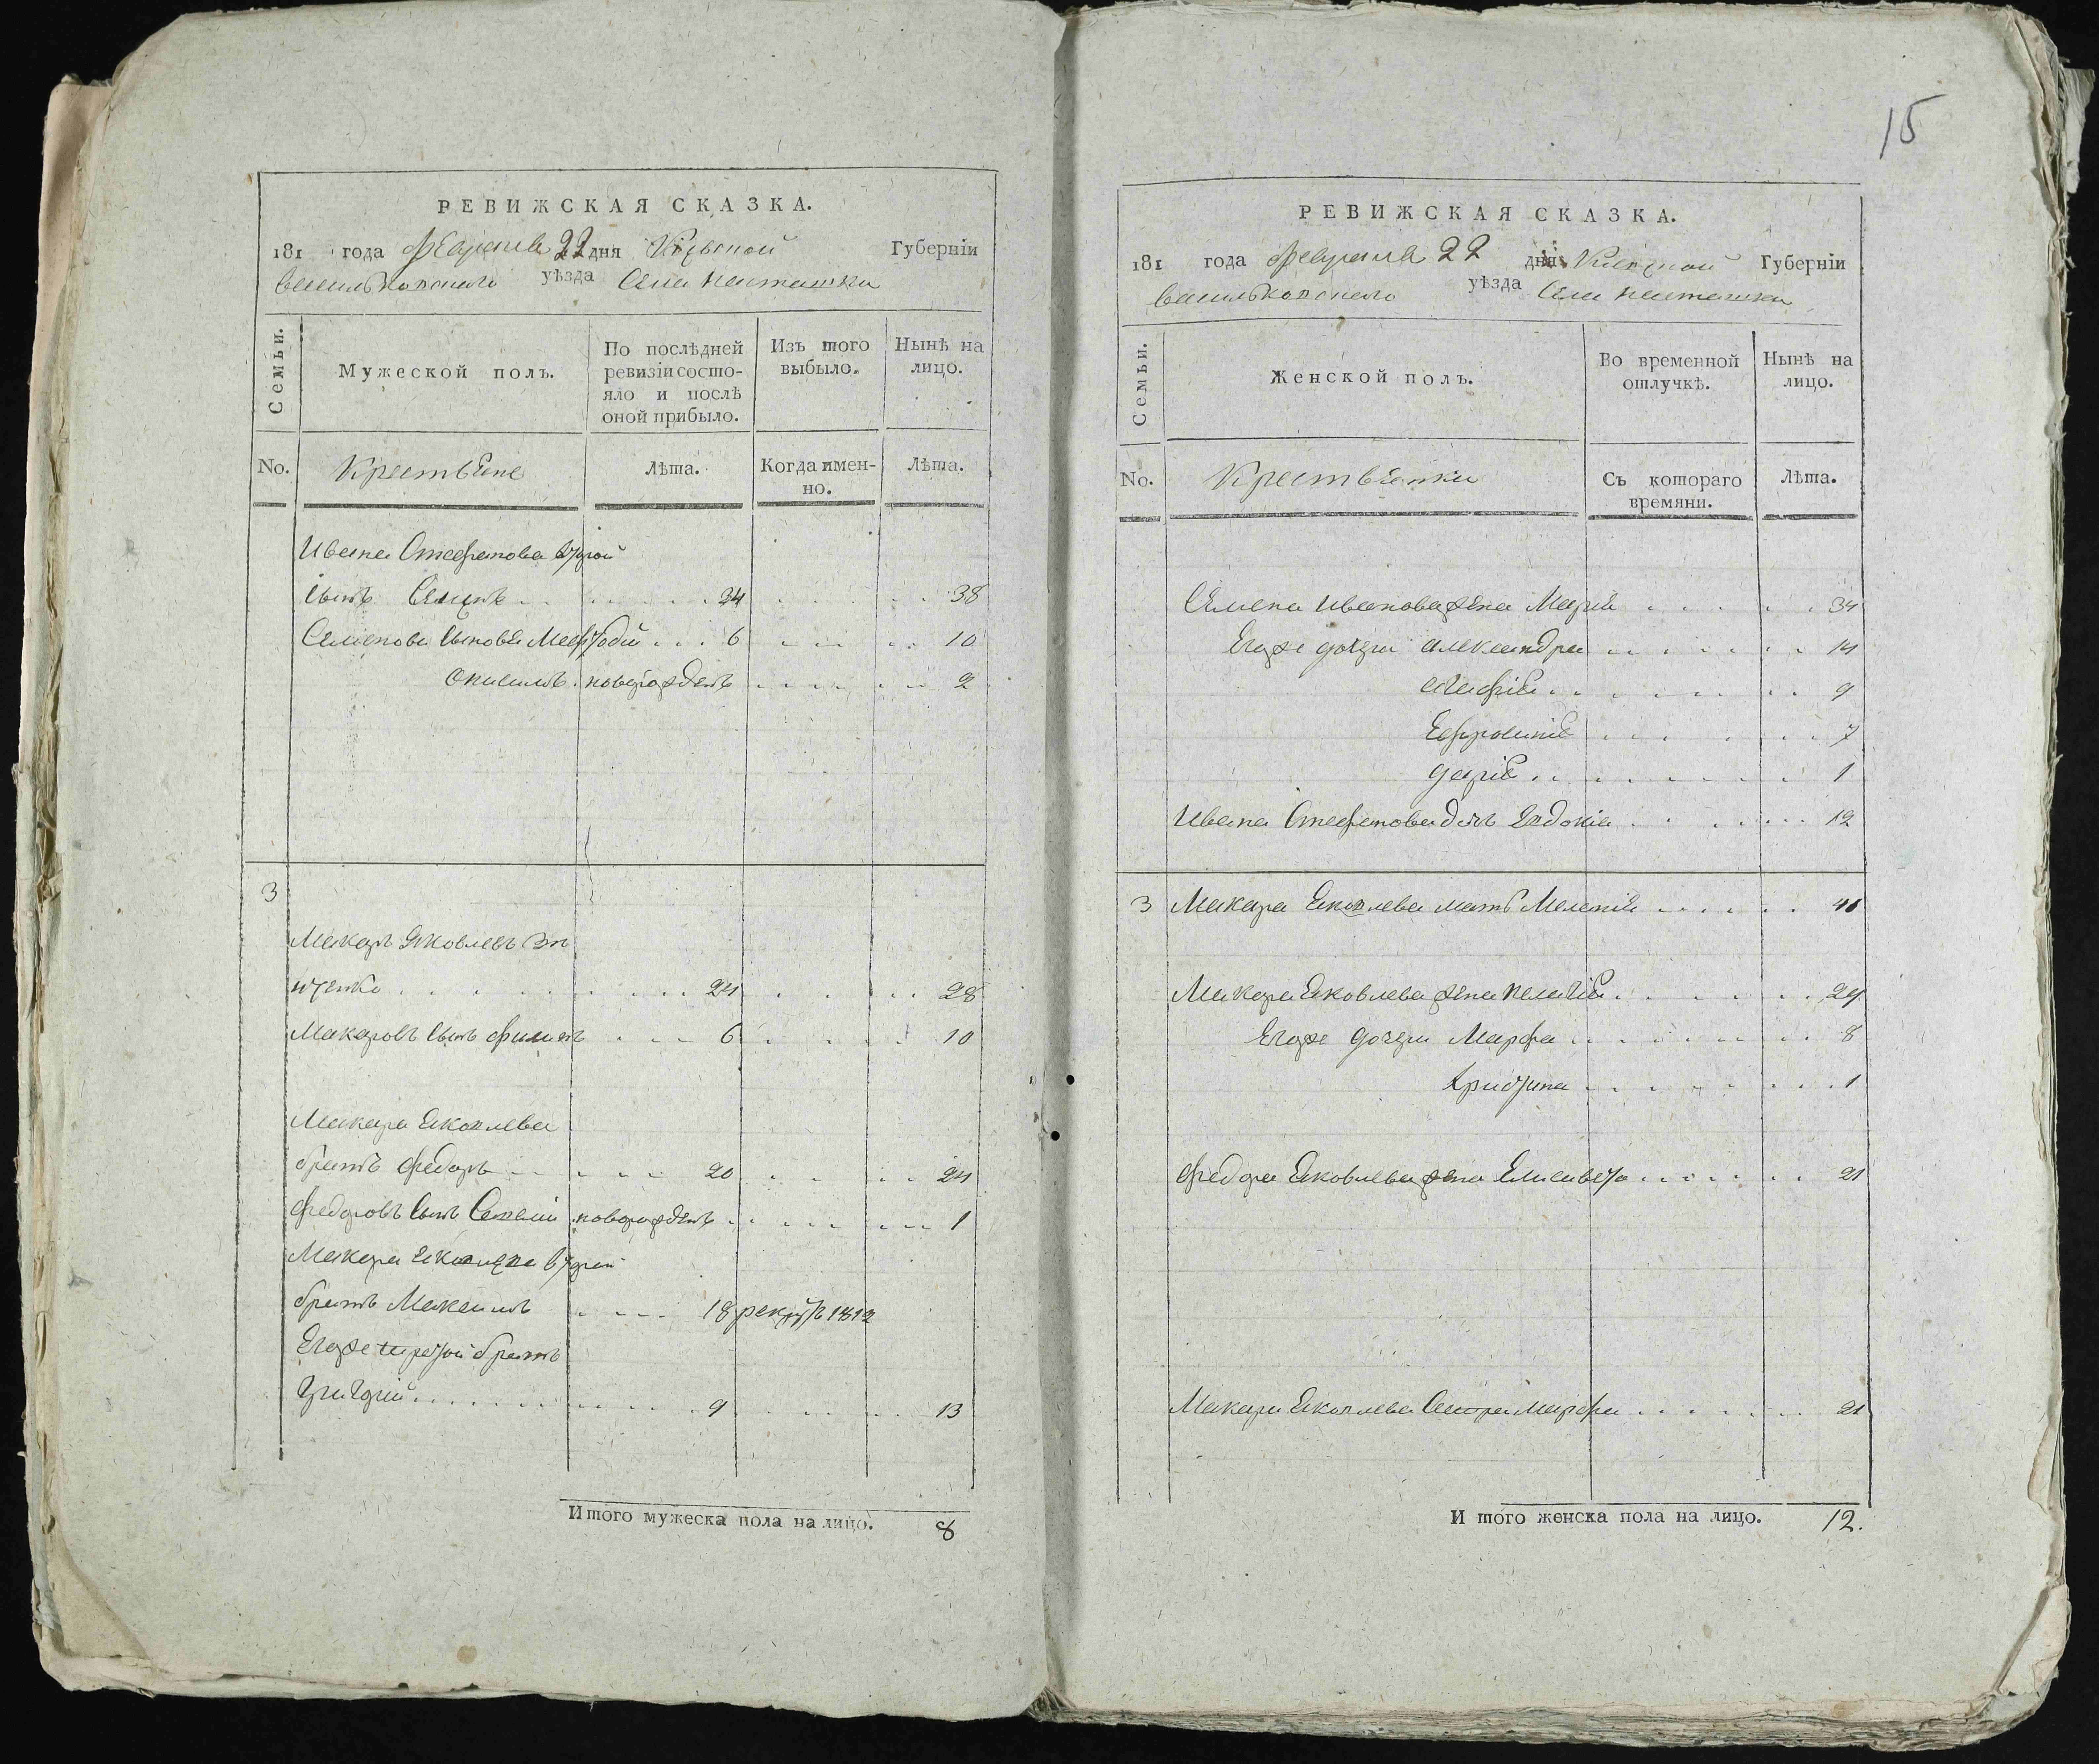 РЕВИЖСКАЯ СКАЗКА.
181 года февраля 22 дня Кіевской Губерніи
васильковскаго уѣзда Села насташки
Семьи.
Мужеской полъ.
По послѣдней ревизіи состо-
яло и послѣ
оной прибыло.
Изъ того
выбыло.
Нынѣ на
лицо.
No.
Крестьяне
Лѣта.
Когда имен-
но.
Лѣта.
Ивана Стефанова второй
сынъ Семенъ 34 38
Семенови сыновья Мефтодій 6 10
Анисимъ новорожденъ 2
3
Макаръ Яковлевъ
24 28
Макаровъ сынъ филипъ 6 10
Макара Яковлева
братъ федоръ 20 24
федоровъ сынъ новорожденъ 1
Макара Яковлева второй
братъ Максимъ 18 рекрутъ 1812
Егоже третой братъ
Григорій 9 13
Итого мужеска пола на лицо. 8
15
РЕВИЖСКАЯ СКАЗКА.
181 года февраля 22 дня Кіевской Губерніи
васильковскаго уѣзда Села насташки
Семьи.
Женской полъ.
Во временной
отлучкѣ.
Нынѣ на
лицо.
No.
Крестьянки
Съ котораго
времяни.
Лѣта.
Семена Иванова жена Марія 34
Егоже дочери александра 14
агафія 9
Ефросинія 7
дарія 1
Ивана Стефанова дочь Евдокія 12
3 Макара Яковлева мать Меланія
Макара Яковлева жена пелагія 24
Егоже дочери Марфа 8
Христина 1
федора Яковлева жена Елисавета 21
Макара Яковлева Сестра марфа 21
Итого женска пола на лицо. 12.